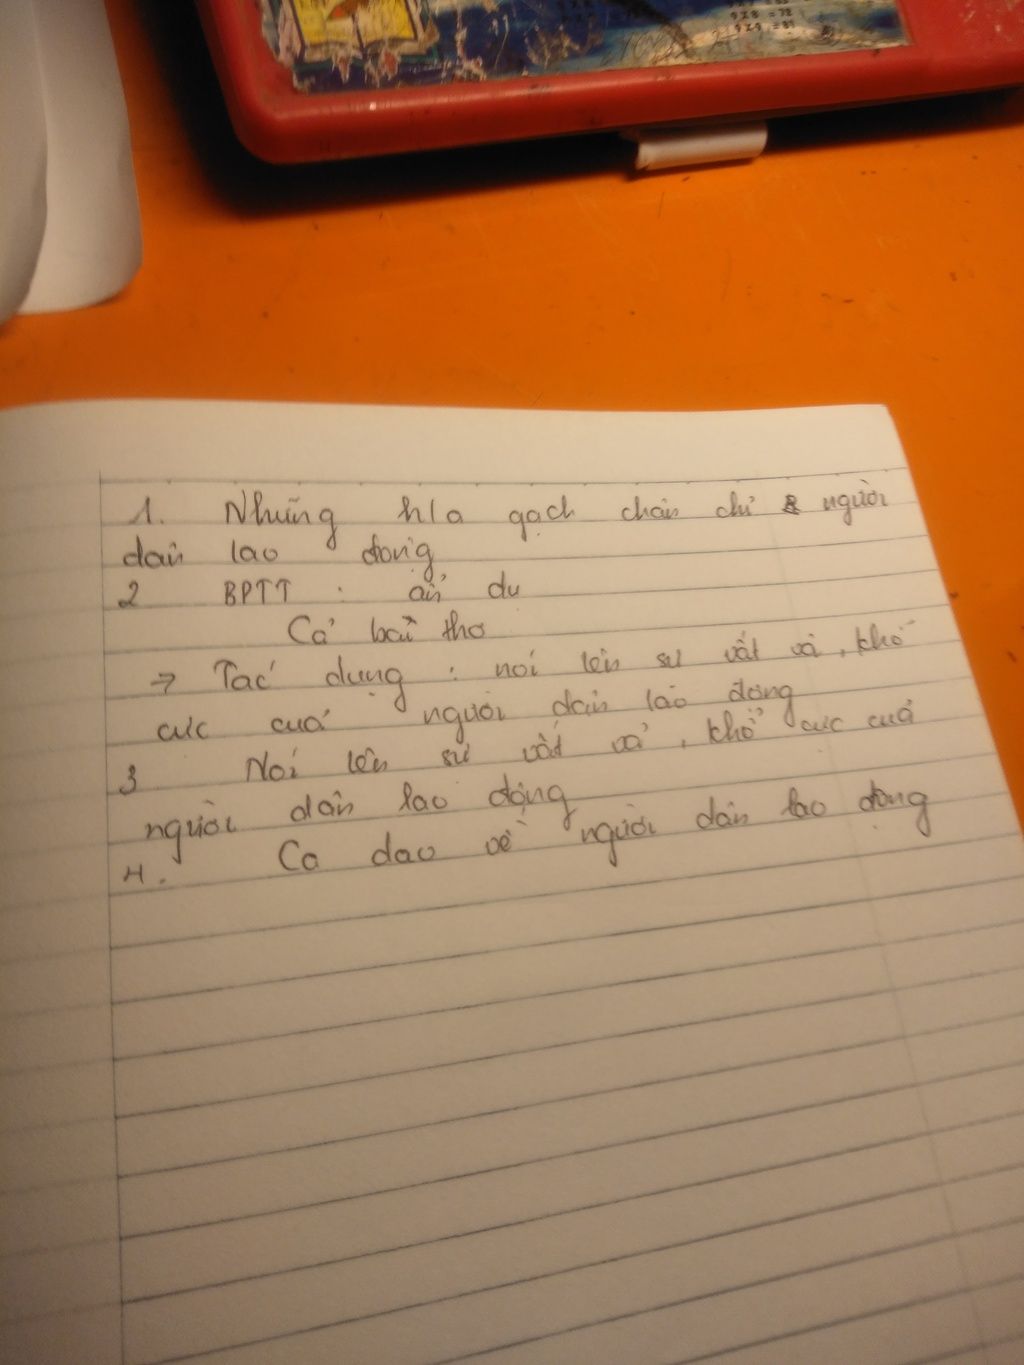 9 x 8 = 78
9 x 9 = 81
1. Những h/a gạch chân chỉ người
dân lao động
2 BPTT : ẩn dụ
Cả bài thơ
→ Tác dụng : nói lên sự vất vả, khổ
cực cuả người dân lao động
3 Nói lên sự vất vả, khổ cực cuả
người dân lao động
4. Ca dao về người dân lao động